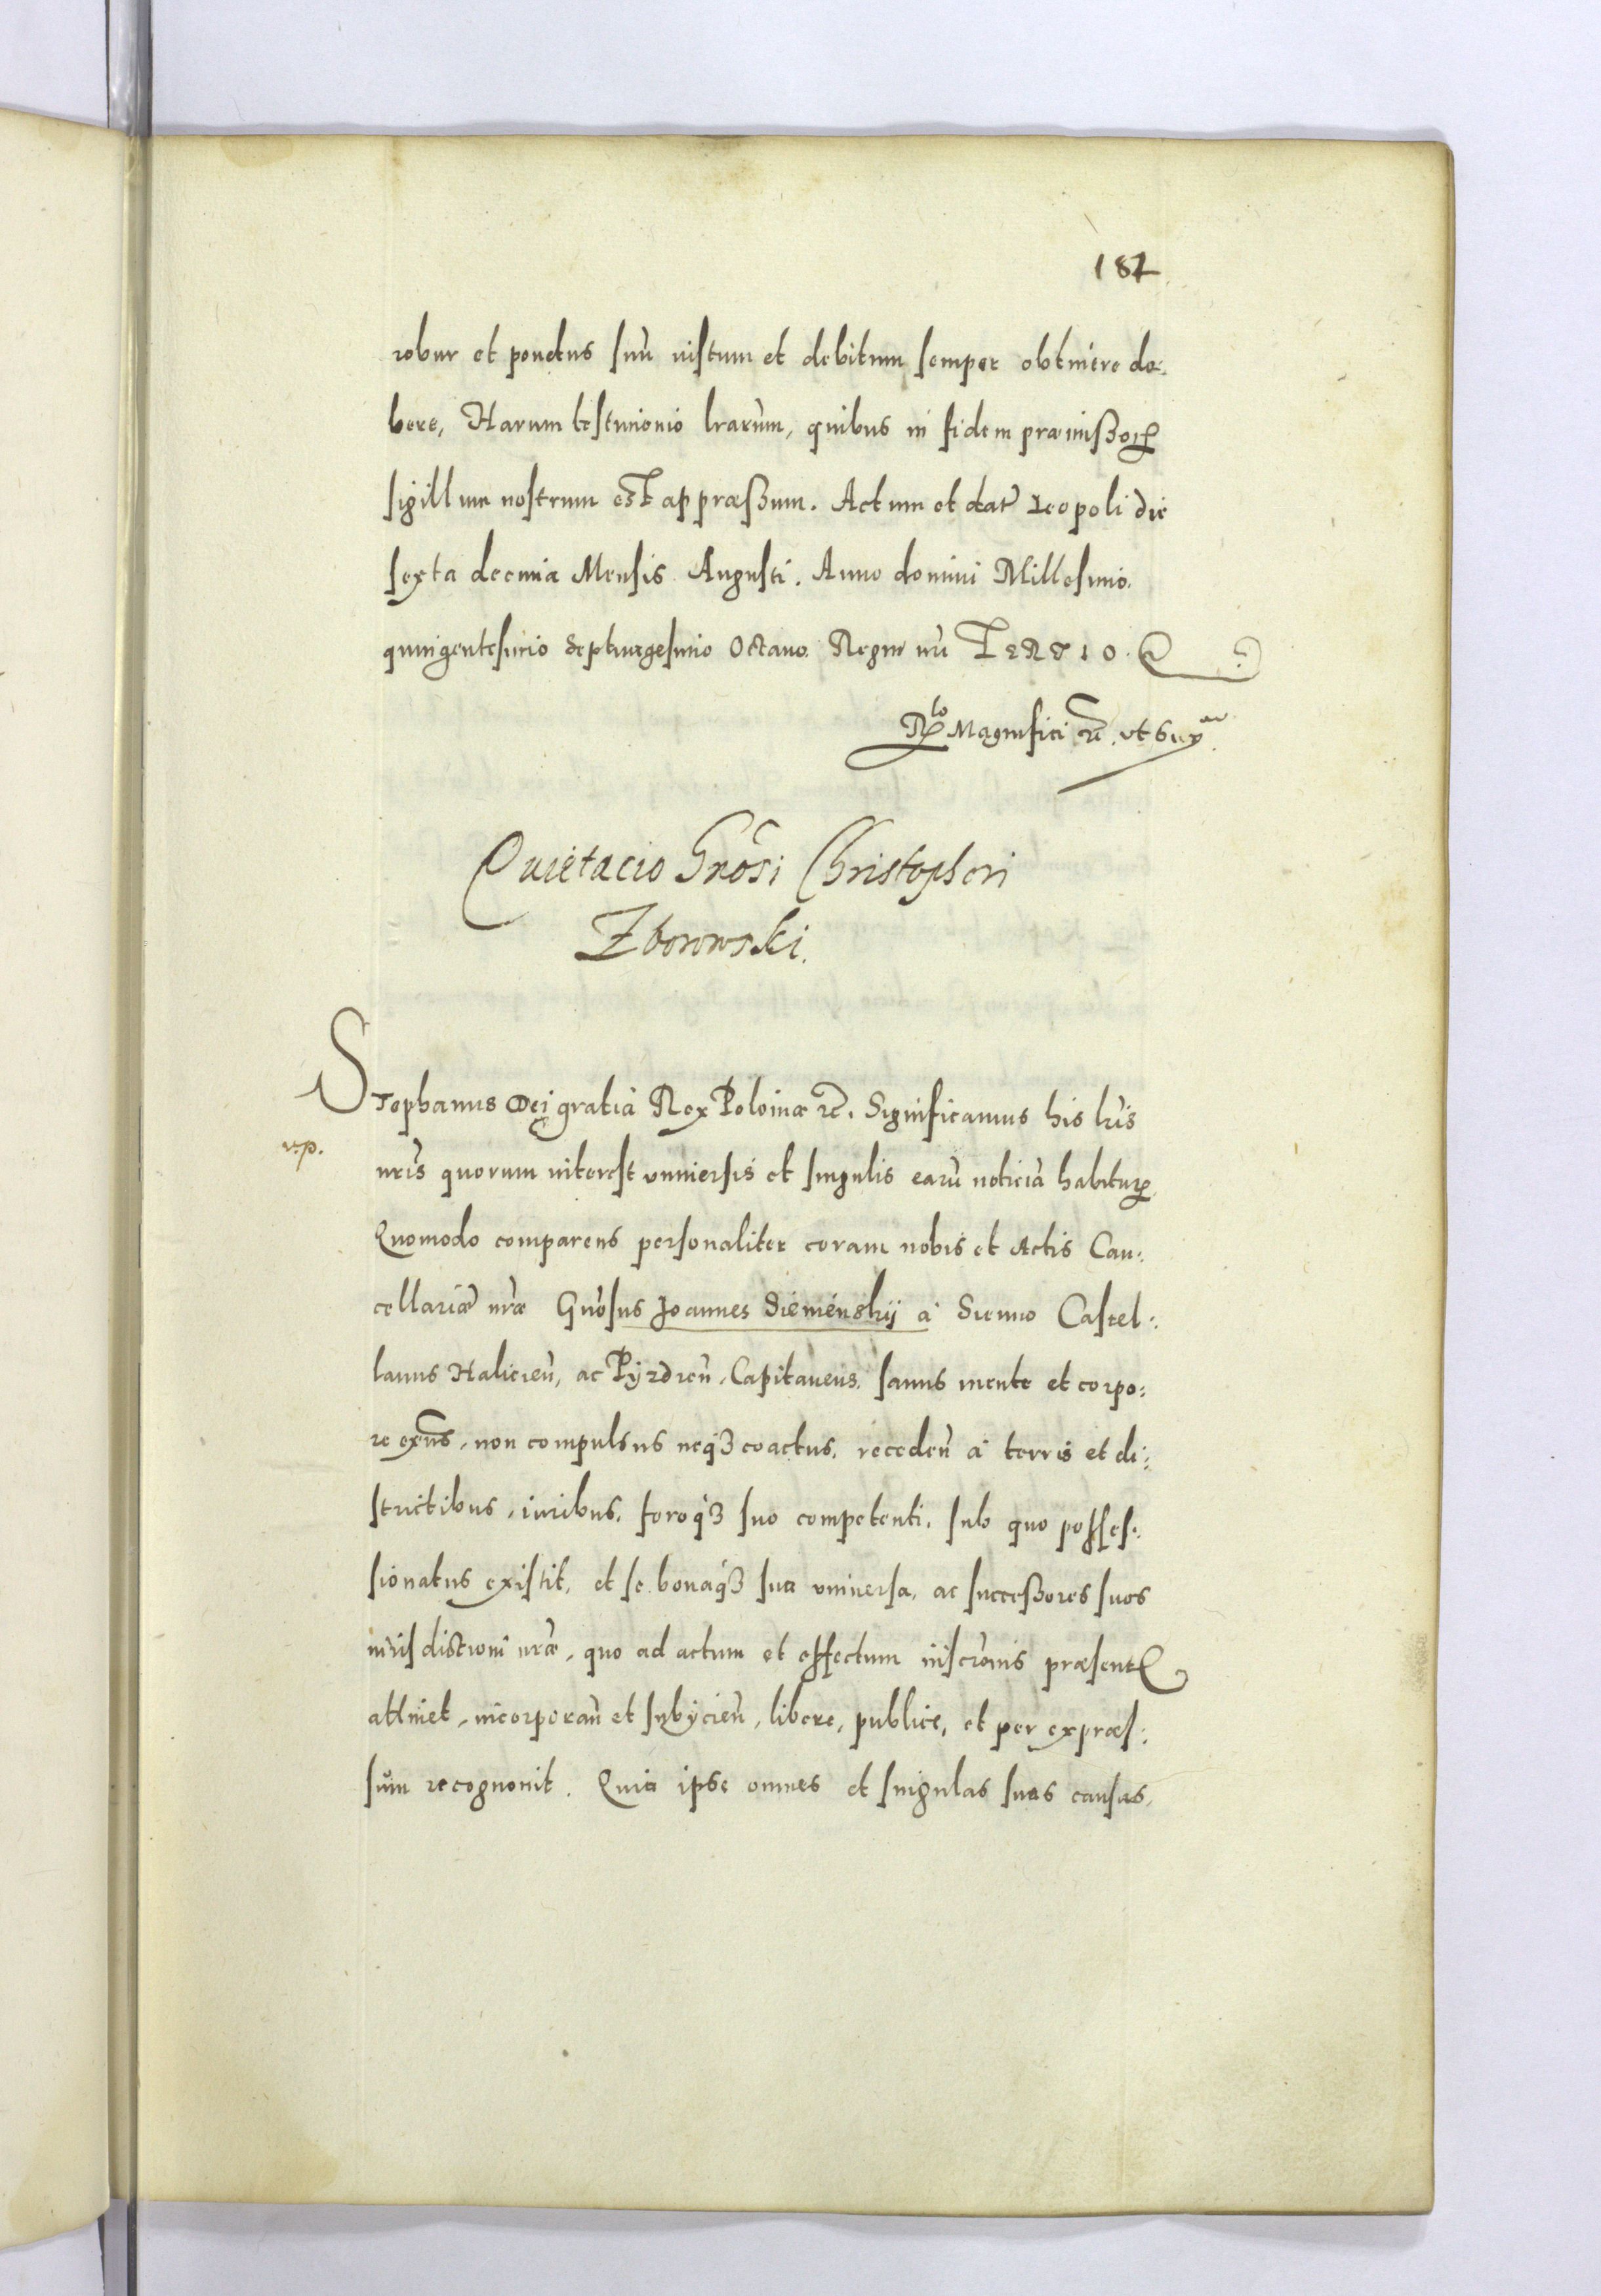 182
robur et pondus suũ iustum et debitum semper obtinere de:
bere, Harum testimonio lrarum, quibus in fidem præmißoꝝ
sigillum nostrum est appræßum. Actum et dat Leopoli die
sexta decima Mensis Augusti. Anno domini Millesimo
quingentesimo Septuagesimo Octauo. Regni nri TERTIO.
Rlo Magnifici etc. ut supra
Quietacio Gnosi Christopheri
Zborowski.
STephanus Dei gratia Rex Poloniæ etc. Significamus his lris
v.p.
nris quorum interest vniuersis et singulis earũ noticiã habituris
Quomodo comparens personaliter coram nobis et Actis Can:
cellariæ nræ Gnosus Joannes Sieniensky à Sienno Castel:
lanus Halicien, ac Pyzdren, Capitaneus, sanus mente et corpo:
re exñs, non compulsus neqꝫ coactus, receden à terris et di:
strictibus, iuribus, foroqꝫ suo competenti, sub quo posses:
sionatus existit, et se bonaqꝫ sua vniuersa, ac succeßores suos
iurisdictioni nræ, quo ad actum et effectum inscrõnis præsentis
attinet, incorporan et subÿcien, libere, publice, et per expræs:
sum recognouit. Quia ipse omnes et singulas suas causas,